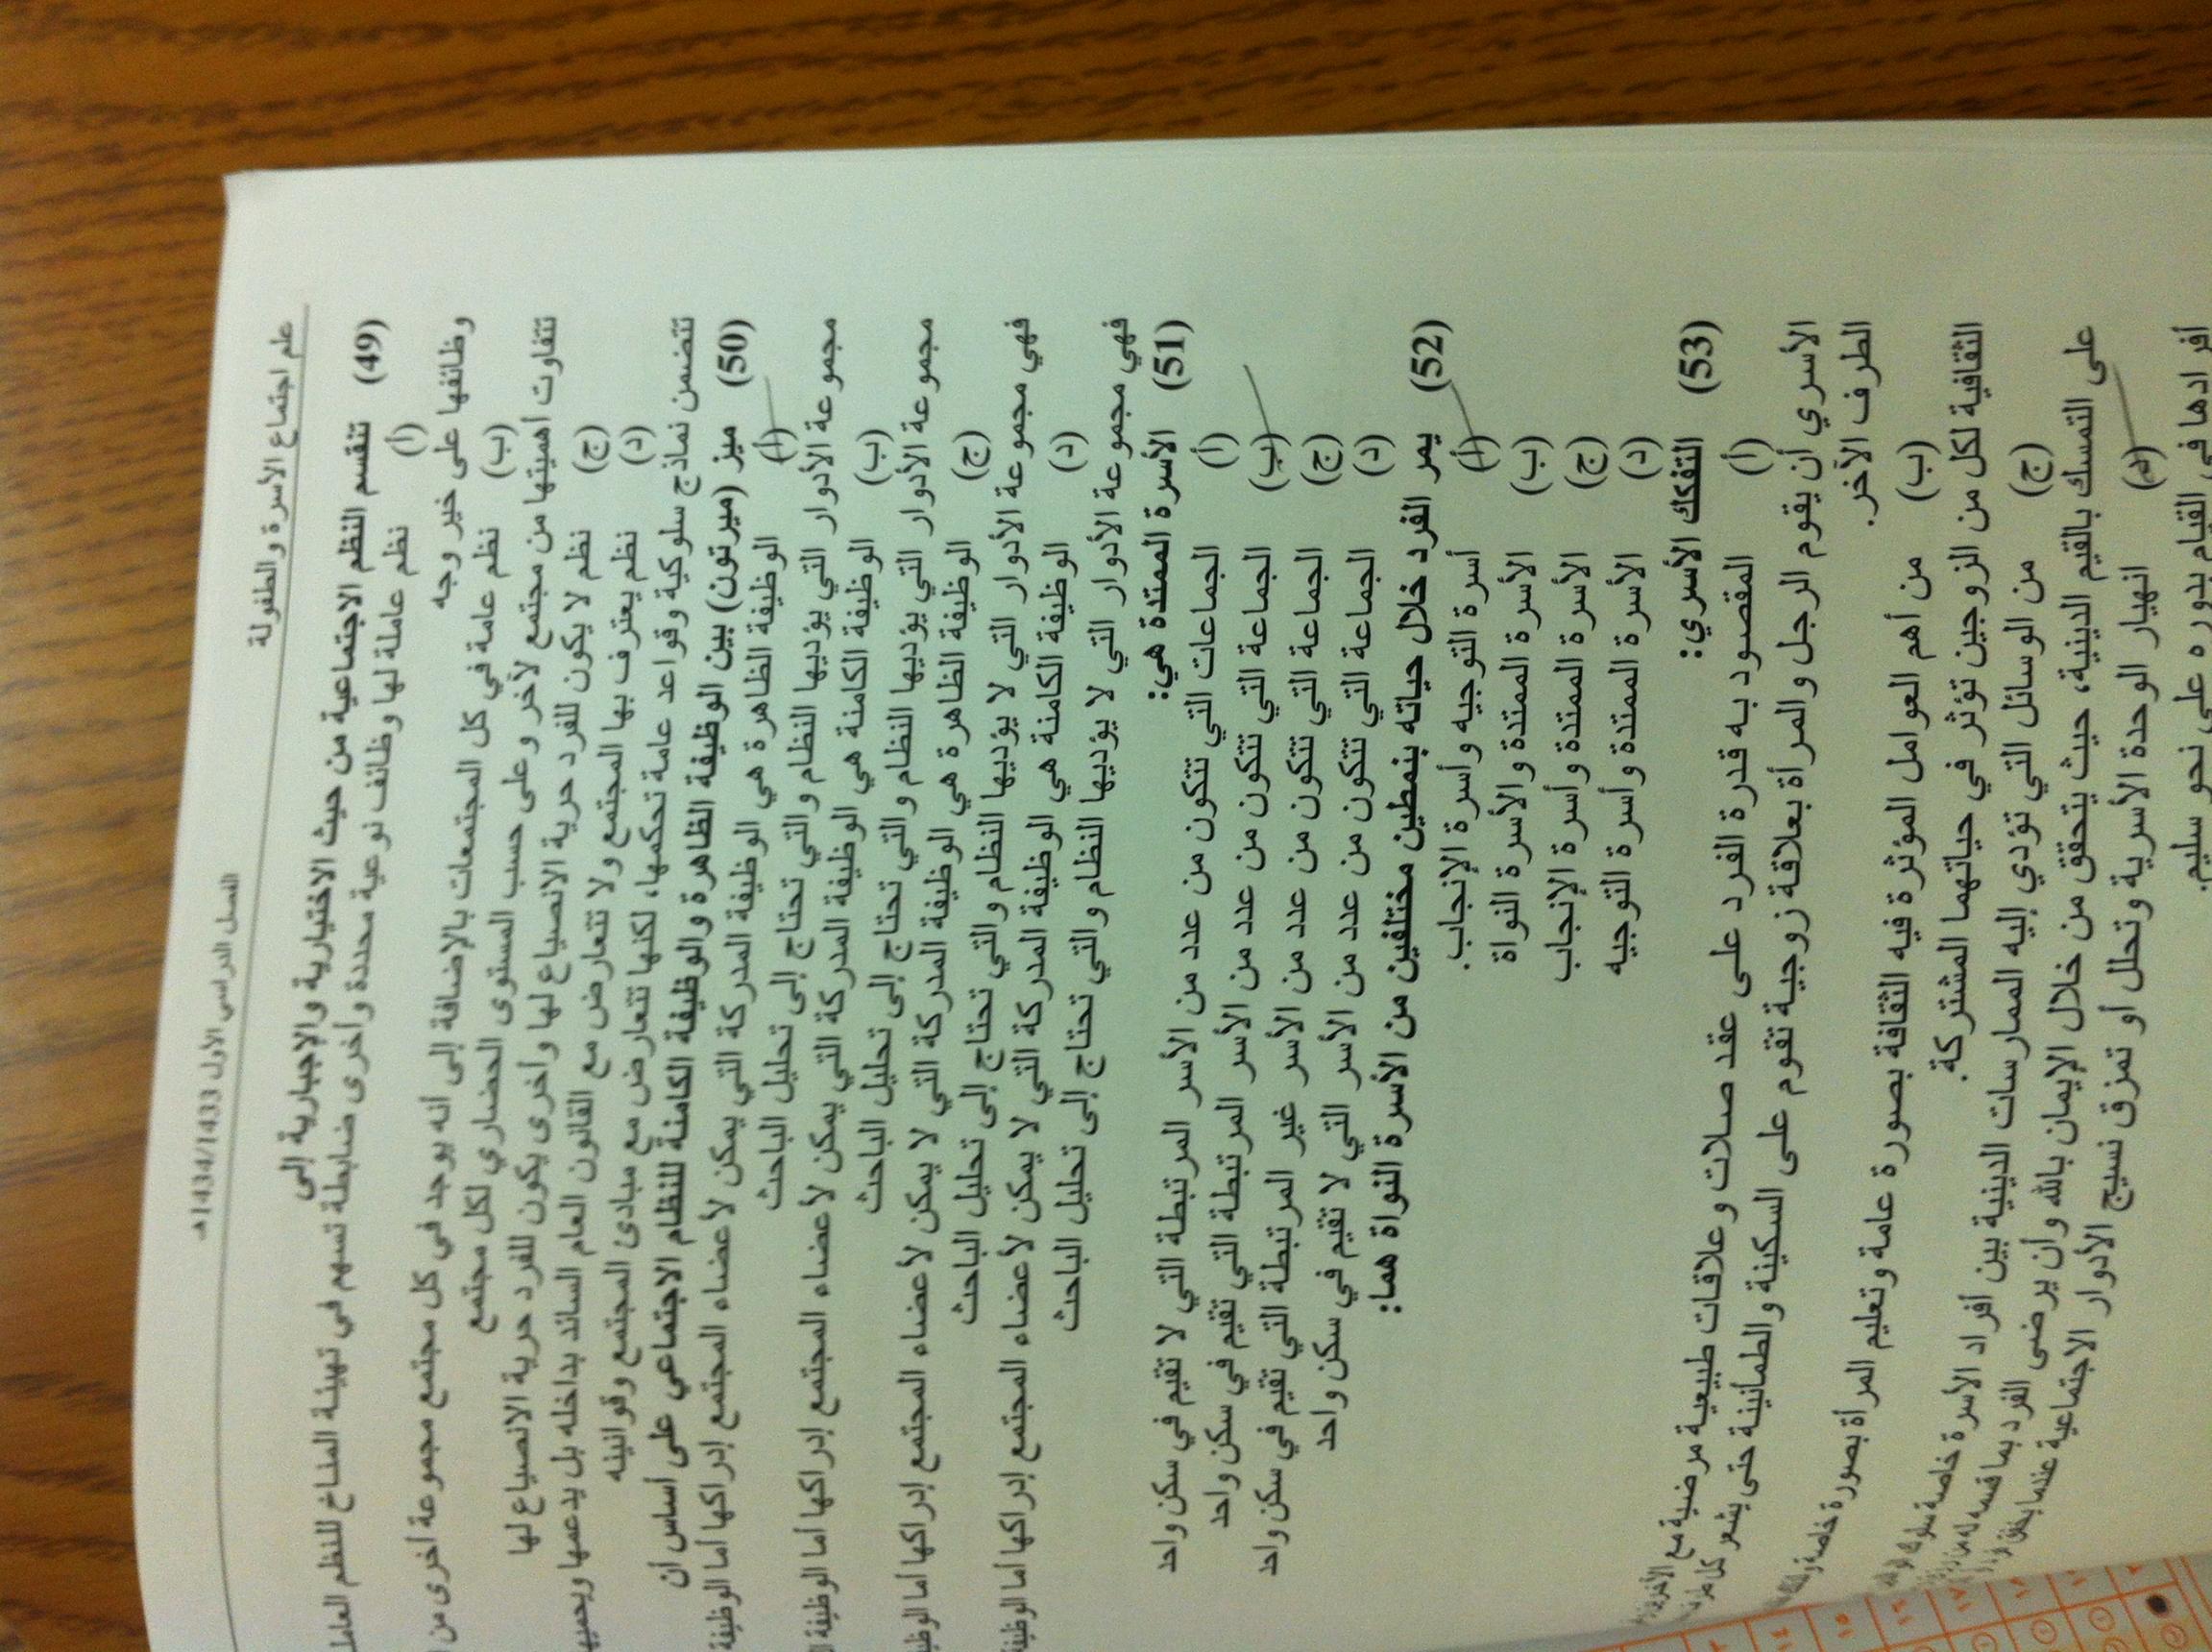 الفصل الدراسي الأول 1434/1433هـ
علم اجتماع الأسرة والطفولة
(49) تنقسم النظم الاجتماعية من حيث الاختيارية والإجبارية إلى
(أ) نظم عاملة لها وظائف نوعية محددة وأخرى ضابطة تسهم في تهيئة المناخ للنظم العاملة
وظائفها على خير وجه
(ب) نظم عامة في كل المجتمعات بالإضافة إلى أنه يوجد في كل مجتمع مجموعة أخرى من
تتفاوت أهميتها من مجتمع لآخر وعلى حسب المستوى الحضاري لكل مجتمع
(ج) نظم لا يكون للفرد حرية الانصياع لها وأخرى يكون للفرد حرية الانصياع لها
(د) نظم يعترف بها المجتمع ولا تتعارض مع القانون العام السائد بداخله بل يدعمها ويحميها
تتضمن نماذج سلوكية وقواعد عامة تحكمها، لكنها تتعارض مع مبادئ المجتمع وقوانينه
(50) ميز (ميرتون) بين الوظيفة الظاهرة والوظيفة الكامنة للنظام الاجتماعي على أساس أن
(أ) الوظيفة الظاهرة هي الوظيفة المدركة التي يمكن لأعضاء المجتمع إدراكها أما الوظيفة
مجموعة الأدوار التي يؤديها النظام والتي تحتاج إلى تحليل الباحث
(ب) الوظيفة الكامنة هي الوظيفة المدركة التي يمكن لأعضاء المجتمع إدراكها أما الوظيفة
مجموعة الأدوار التي يؤديها النظام والتي تحتاج إلى تحليل الباحث
(ج) الوظيفة الظاهرة هي الوظيفة المدركة التي لا يمكن لأعضاء المجتمع إدراكها أما
فهي مجموعة الأدوار التي لا يؤديها النظام والتي تحتاج إلى تحليل الباحث
(د) الوظيفة الكامنة هي الوظيفة المدركة التي لا يمكن لأعضاء المجتمع إدراكها أما الوظيفة
فهي مجموعة الأدوار التي لا يؤديها النظام والتي تحتاج إلى تحليل الباحث
(51) الأسرة الممتدة هي:
(أ) الجماعات التي تتكون من عدد من الأسر المرتبطة التي لا تقيم في سكن واحد
(ب) الجماعة التي تتكون من عدد من الأسر المرتبطة التي تقيم في سكن واحد
(ج) الجماعة التي تتكون من عدد من الأسر غير المرتبطة التي تقيم في سكن واحد
(د) الجماعة التي تتكون من عدد من الأسر التي لا تقيم في سكن واحد
(52) يمر الفرد خلال حياته بنمطين مختلفين من الأسرة النواة هما:
(أ) أسرة التوجيه وأسرة الإنجاب.
(ب) الأسرة الممتدة والأسرة النواة
(ج) الأسرة الممتدة وأسرة الإنجاب
(د) الأسرة الممتدة وأسرة التوجيه
(53) التفكك الأسري:
(أ) المقصود به قدرة الفرد على عقد صلات وعلاقات طبيعية مرضية مع
الأسري أن يقوم الرجل والمرأة بعلاقة زوجية تقوم على السكينة والطمأنينة حتى يشعر كل
الطرف الآخر.
(ب) من أهم العوامل المؤثرة فيه الثقافة بصورة عامة وتعليم المرأة بصورة خاصة
الثقافية لكل من الزوجين تؤثر في حياتهما المشتركة.
(ج) من الوسائل التي تؤدي إليه الممارسات الدينية بين أفراد الأسرة خاصة
على التمسك بالقيم الدينية، حيث يتحقق من خلال الإيمان بالله وأن يرضى الفرد بما قسمه
(د) انهيار الوحدة الأسرية وتحلل أو تمزق نسيج الأدوار الاجتماعية عندما
أفرادها في القيام بدوره على نحو سليم.